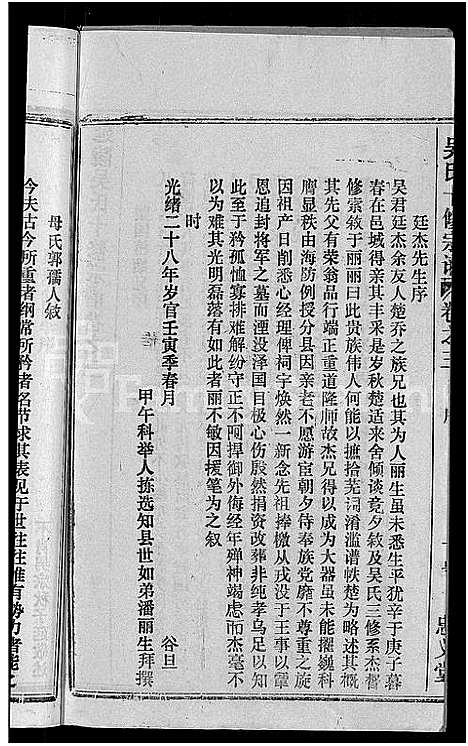 吴氏修宗谱 卷之三 序 忠义堂
廷杰先生序
吴君廷杰余友人楚乔之族兄也其为人丽生虽未悉生平犹辛于庚子暮
春在邑城得亲其丰采于是岁秋楚适来舍倾谈竟夕敘及吴氏三修系杰督
修崇敘于丽丽曰此贵族伟人何能以摭拾芜词淆滥谱帙楚为略述其概
其先父有荣翁品行端正重道隆师故杰兄得以成为大器虽未能擢巍科
膺显秩由海防例授分县因亲老不愿游宦朝夕侍奉族党靡不尊重之旋
因祖产日削悉心经理俾祠宇焕然一新念先祖捧檄从戎没于王事以覃
恩追封将军之墓而湮没泽国目极心伤殷然捐资改葬非纯孝乌足以知
此至于矜孤恤寡排难解纷守正不阿捍御外侮经年殚神竭虑而杰毫不
以为难其光明磊落有如此者丽不敏因援笔为之叙
时
光绪二十八年岁官壬寅季春月 谷旦
甲午科举人拣选知县世如弟潘丽生拜撰
母氏郭孺人敘
今夫古今所重者纲常所矜者名节求其表见于世往往惟有势力者能之